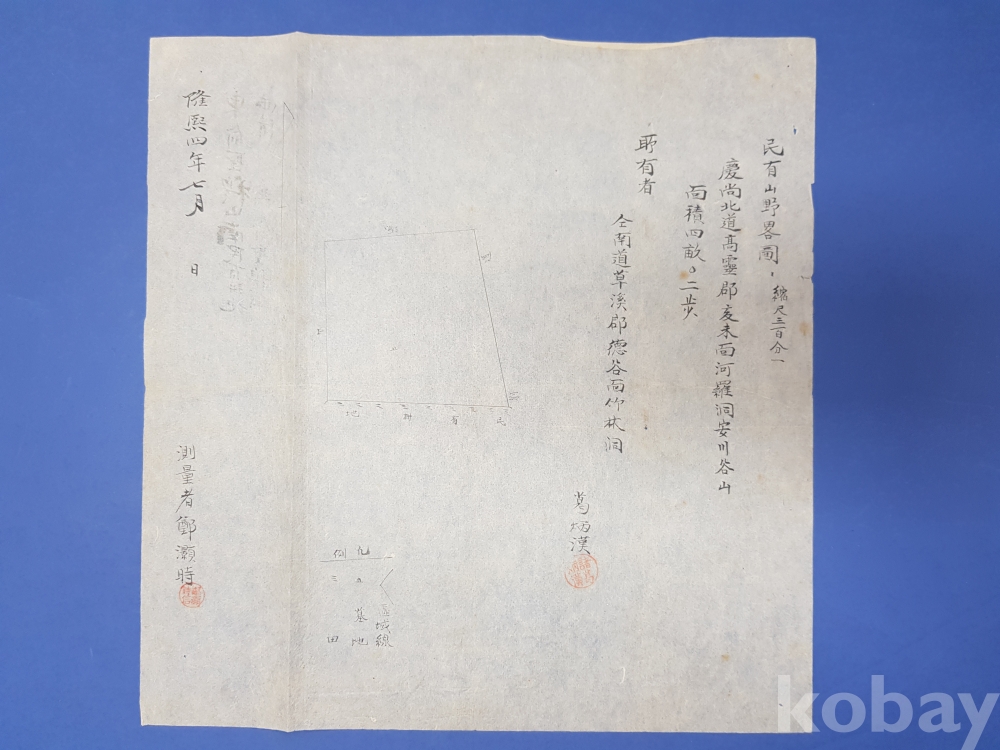 民有山野畧圖, 縮尺三百分一
慶尚北道高靈郡亥未面河羅洞安川谷山
面積四畝。二步
所有者
仝南道草溪郡德谷面竹林洞
葛炳漢
民有耕地
凡例
區域線
墓地
田
隆熙四年七月 日
測量者鄭灝時
kobay